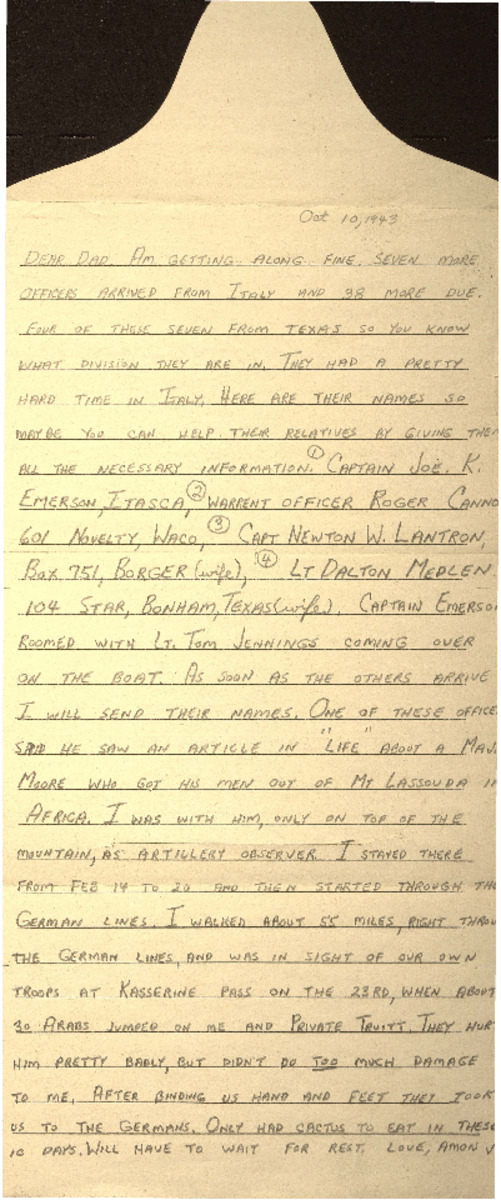 Oct 10, 1943
DEAR DAD. AM GETTING ALONG FINE. SEVEN MORE
OFFICERS ARRIVED FROM ITALY AND 38 MORE DUE.
FOUR OF THESE SEVEN FROM TEXAS SO YOU KNOW
WHAT DIVISION THEY ARE IN. THEY HAD A PRETTY
HARD TIME IN ITALY. HERE ARE THEIR NAMES SO
MAYBE YOU CAN HELP THEIR RELATIVES BY GIVING THEM
ALL THE NECESSARY INFORMATION. ① CAPTAIN JOE. K.
EMERSON, ITASCA, ② WARRENT OFFICER ROGER CANNO
601 NOVELTY, WACO, ③ CAPT NEWTON W. LANTRON,
BOX 751, BORGER (wife), ④ LT DALTON MEDLEN
104 STAR, BONHAM, TEXAS (wife). CAPTAIN EMERSO
ROOMED WITH LT. TOM JENNINGS COMING OVER
ON THE BOAT. AS SOON AS THE OTHERS ARRIVE
I WILL SEND THEIR NAMES. ONE OF THESE OFFICE
SAID HE SAW AN ARTICLE IN "LIFE" ABOUT A MAJ.
MOORE WHO GOT HIS MEN OUT OF MT LASSOUDA IN
AFRICA. I WAS WITH HIM, ONLY ON TOP OF THE
MOUNTAIN, AS ARTILLERY OBSERVER I STAYED THERE
FROM FEB 14 TO 20 AND THEN STARTED THROUGH THE
GERMAN LINES. I WALKED ABOUT 55 MILES, RIGHT THROU
THE GERMAN LINES, AND WAS IN SIGHT OF OUR OWN
TROOPS AT KASSERINE PASS ON THE 23RD, WHEN ABOUT
30 ARABS JUMPED ON ME AND PRIVATE TRUITT. THEY HURT
HIM PRETTY BADLY, BUT DIDN'T DO TOO MUCH DAMAGE
TO ME. AFTER BINDING US HAND AND FEET THEY TOOK
US TO THE GERMANS. ONLY HAD CACTUS TO EAT IN THESE
10 DAYS. WILL HAVE TO WAIT FOR REST. LOVE, AMON